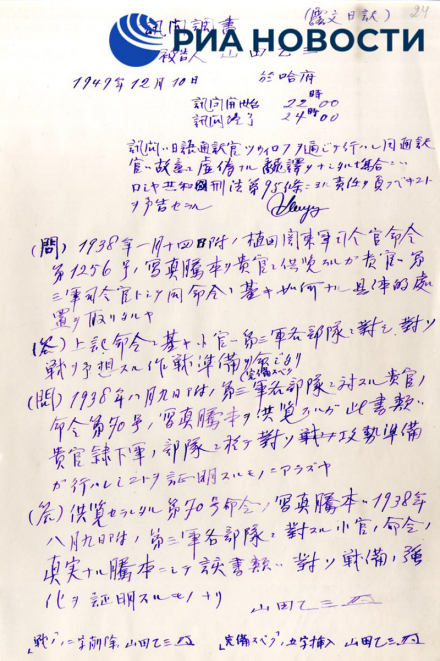 (露文日訳)
24
訊問調書
РИА НОВОСТИ
被告人 山田乙三
1949年12月10日 於哈府
訊問開始 22時00
訊問終了 24時00
訊問ハ日語通訳官ツヴィロフヲ通シテ行ハレ同通訳
官ハ故意ニ虚偽ナル飜譯ヲナシタル場合ハ
ロシヤ共和国刑法第95條ニヨル責任ヲ負フベキコト
ヲ予告セラル
(問) 1938年一月十四日附、植田関東軍司令官命令
第1256号ノ写真騰本ヲ貴官ニ供覧スルガ貴官ハ第
三軍司令官トシテ同命令ニ基キ如何ナル具体的處
置ヲ取リタルヤ
(答) 上記命令ニ基キ小官ハ第三軍各部隊ニ對シ、對ソ
戦ヲ予想スル作戦準備ヲ命ジタリ
(完備スベク)
(問) 1938年八月九日附、第三軍各部隊ニ対スル貴官ノ
命令第70号ノ写真騰本ヲ供覧スルガ此書類ハ
貴官隷下軍ノ部隊ニ於テ對ソ戦ノ攻勢準備
ガ行ハレシコトヲ証明スルモノニアラズヤ
(答) 供覧セラレタル第70号命令ノ写真騰本ハ1938年
八月九日附、第三軍各部隊ニ對スル小官ノ命令ノ
真実ナル騰本ニシテ該書類ハ對ソ戦備ノ強
化ヲ証明スルモノナリ
山田乙三
二字削除 山田乙三
「完備スベク」五字挿入 山田乙三